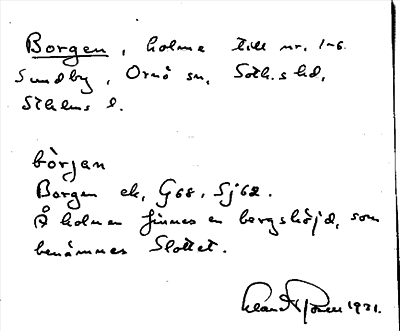 Borgen, holme till nr. 1-6
Sundby, Ornö sn, Soth.s hd,
Sthlms l.
början
Borgen ek, G68, Sj62.
Å holmen finnes en bergshöjd, som
benämnes Slottet.
1931.